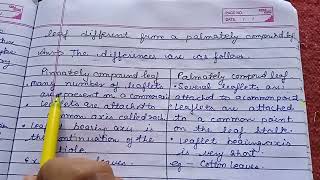 PAGE NO.
DATE
leaf different from a palmately compound leaf
Ans → The differences are as follows.
Pinnately compound leaf
• many number of leaflets
are present on a common
• leaflets are attached to
common axis called
• leaflet bearing axis is
the continuation of the
leaves
Palmately compound leaf
• Several leaflets are
attached to a common point
• leaflets are attached
to a common point
on the leaf stalk.
• leaflet bearing axis
is very short.
eg - Cotton leaves.